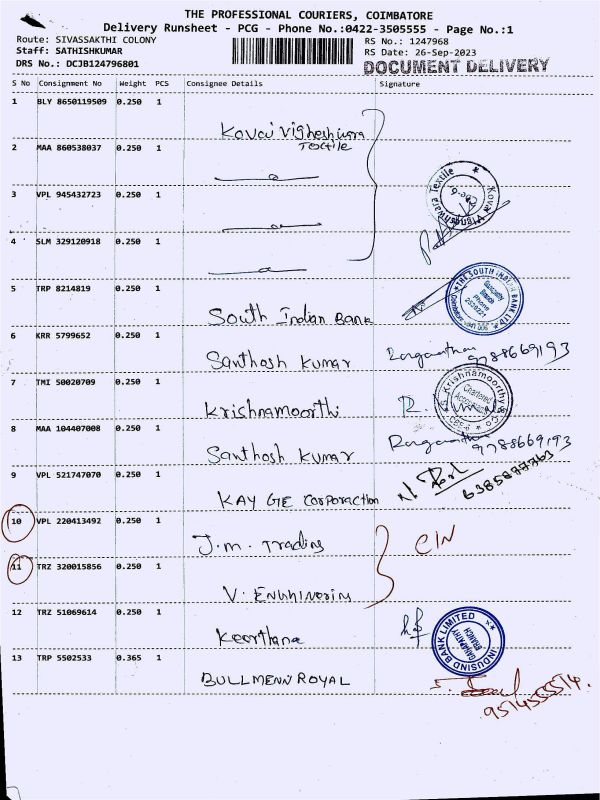 THE PROFESSIONAL COURIERS, COIMBATORE
Delivery Runsheet - PCG - Phone No.:0422-3505555 - Page No.:1
Route: SIVASSAKTHI COLONY
Staff: SATHISHKUMAR
DRS No.: DCJB124796801
RS No.: 1247968
RS Date: 26-Sep-2023
DOCUMENT DELIVERY
S No Consignment No Weight PCS Consignee Details Signature
1 BLY 8650119509 0.250 1
Kovai Vigheshwara
Textile
2 MAA 860538037 0.250 1
3 VPL 945432723 0.250 1
Kovai Vigneshwara Textile
Cbe-6
4 SLM 329120918 0.250 1
5 TRP 8214819 0.250 1
South Indian Bank
THE SOUTH INDIAN BANK LTD
Ganapathy
Branch
Phone
6 KRR 5799652 0.250 1
Santhosh Kumar
9788669193
7 TMI 50020709 0.250 1
Krishnamoorthi
S. Krishnamoorthy & Co
Chartered
Accountants
8 MAA 104407008 0.250 1
Santhosh Kumar
9788669193
9 VPL 521747070 0.250 1
KAY GE Corporaction
6385877763
10 VPL 220413492 0.250 1
J.m. Trading
C/N
11 TRZ 320015856 0.250 1
12 TRZ 51069614 0.250 1
Keerthana
INDUSIND BANK LIMITED
GANAPATHY
BRANCH
13 TRP 5502533 0.365 1
BULLMENN ROYAL